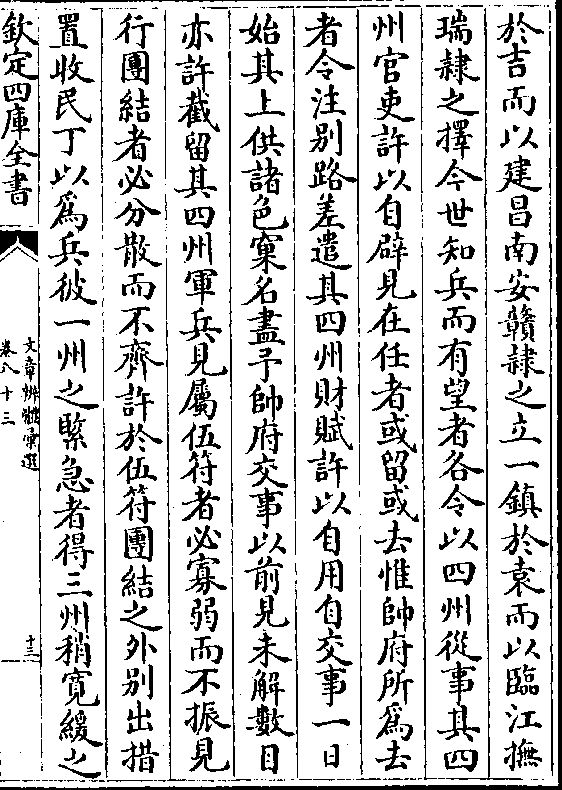 於吉而以建昌南安贛隷之立一鎮於袁而以臨江撫
瑞隷之擇今世知兵而有望者各令以四州從事其四
州官吏許以自辟見在任者或留或去惟帥府所爲去
者令注别路差遣其四州財賦許以自用自交事一日
始其上供諸色窠名盡予帥府交事以前見未解數目
亦許截留其四州軍兵見屬伍符者必寡弱而不振見
行團結者必分散而不齊許於伍符團結之外别出措
置收民丁以爲兵彼一州之緊急者得三州稍寛緩之
欽定四庫全書
文章辨體彙選
卷八十三
十三